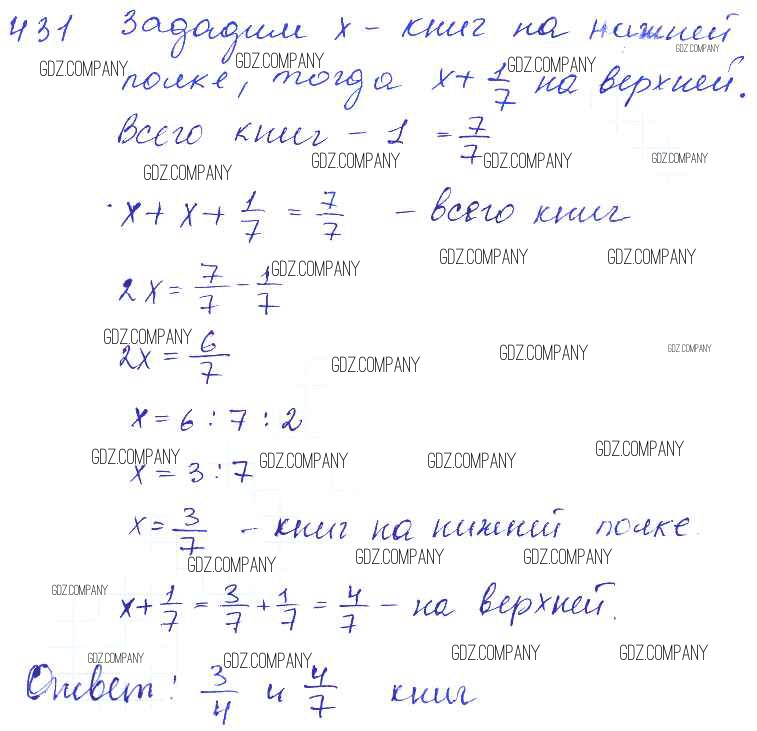 431 Зададим x - книг на нижней
GDZ.COMPANY GDZ.COMPANY GDZ.COMPANY GDZ.COMPANY
полке, тогда x + 1/7 на верхней.
Всего книг - 1 = 7/7
GDZ.COMPANY GDZ.COMPANY GDZ.COMPANY GDZ.COMPANY
x + x + 1/7 = 7/7 - всего книг
GDZ.COMPANY GDZ.COMPANY GDZ.COMPANY
2x = 7/7 - 1/7
GDZ.COMPANY GDZ.COMPANY GDZ.COMPANY GDZ.COMPANY
2x = 6/7
x = 6 : 7 : 2
GDZ.COMPANY GDZ.COMPANY GDZ.COMPANY GDZ.COMPANY
x = 3 : 7
x = 3/7 - книг на нижней полке.
GDZ.COMPANY GDZ.COMPANY GDZ.COMPANY
GDZ.COMPANY
x + 1/7 = 3/7 + 1/7 = 4/7 - на верхней.
GDZ.COMPANY GDZ.COMPANY GDZ.COMPANY GDZ.COMPANY
Ответ: 3/4 и 4/7 книг